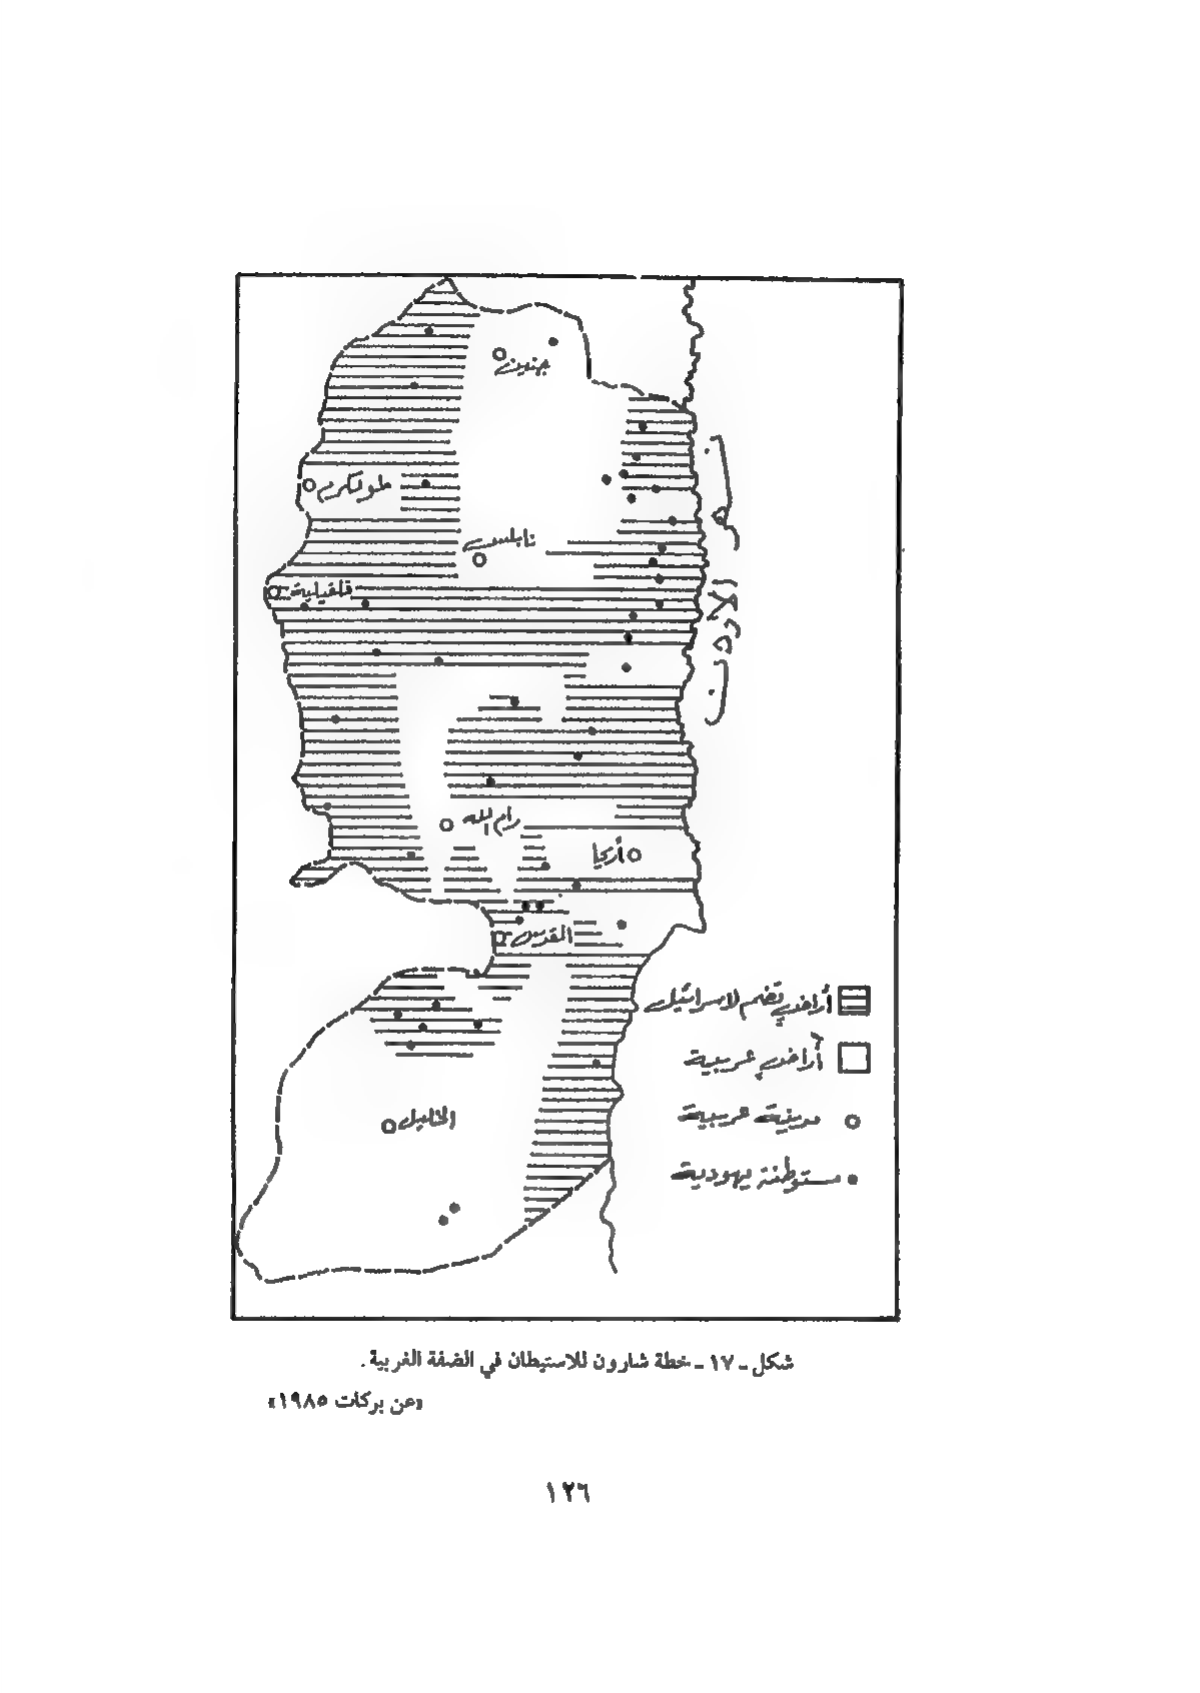 جنين
طولكرم
نابلس
قلقيلية
نهر الأردن
رام الله
أريحا
القدس
أراضي تضم لاسرائيل
أراضي عربية
الخليل
مدينة عربية
مستوطنة يهودية
شكل ـ ١٧ ـ خطة شارون للاستيطان في الضفة الغربية .
«عن بركات ١٩٨٥»
١٢٦